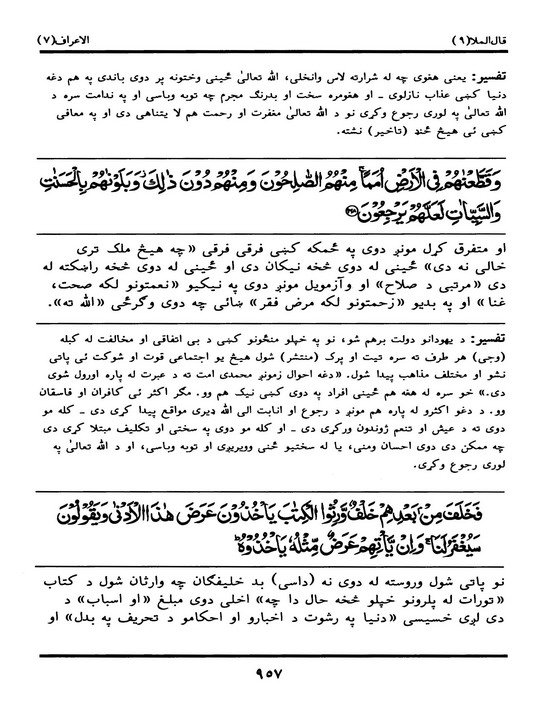 قال الملأ(٩) الاعراف(٧)
تفسير: يعنې هغوى چه له شرارته لاس وانخلى، الله تعالىٰ ځينې وختونه پر دوى باندې په هم دغه
دنيا كښې عذاب نازلوى ـ او هغومره سخت او بدرنګ مجرم چه توبه وباسى او په ندامت سره د
الله تعالىٰ په لورى رجوع وكړى نو د الله تعالىٰ مغفرت او رحمت هم لا يتناهى دى او په معافى
كښې ئى هيڅ ځنډ (تاخير) نشته.
وَقَطَّعْنٰهُمْ فِى الْاَرْضِ اُمَمًا ۚ مِنْهُمُ الصّٰلِحُوْنَ وَمِنْهُمْ دُوْنَ ذٰلِكَ ۖ وَبَلَوْنٰهُمْ بِالْحَسَنٰتِ
وَالسَّيِّاٰتِ لَعَلَّهُمْ يَرْجِعُوْنَ ﴿۱۶۸﴾
او متفرق كړل مونږ دوى په ځمكه كښې فرقې فرقې «چه هيڅ ملک ترى
خالى نه دى» ځينى له دوى څخه نيكان دى او ځينى له دوى څخه راښكته له
دى «مرتبى د صلاح» او آزمويل مونږ دوى په نيكيو «نعمتونو لكه صحت،
غنا» او په بديو «زحمتونو لكه مرض فقر» ښائى چه دوى وګرځى «الله ته».
تفسير: د يهودانو دولت برهم شو، نو په خپلو منځونو كښې د بى اتفاقى او مخالفت له كبله
(وجى) هر طرف ته سره تيت او پرک (منتشر) شول هيڅ يو اجتماعى قوت او شوكت ئى پاتى
نشو او مختلف مذاهب پيدا شول. «دغه احوال زمونږ محمدى امت ته د عبرت له پاره اورول شوى
دى.» خو سره له هغه هم ځينى افراد په دوى كښې نيک هم وو. مګر اكثر ئى كافران او فاسقان
وو. د دغو اكثرو له پاره هم مونږ د رجوع او انابت الى الله ډيرى مواقع پيدا كړى دى ـ كله مو
دوى ته د عيش او تنعم ژوندون وركړى دى ـ او كله مو دوى په سختى او تكليف مبتلا كړى دى
چه ممكن دى دوى احسان ومنى، يا له سختيو څنى وويريږى او توبه وباسى، او د الله تعالىٰ په
لورى رجوع وكړى.
فَخَلَفَ مِنْۢ بَعْدِهِمْ خَلْفٌ وَّرِثُوا الْكِتٰبَ يَاْخُذُوْنَ عَرَضَ هٰذَا الْاَدْنٰى وَيَقُوْلُوْنَ
سَيُغْفَرُ لَنَا ۚ وَاِنْ يَّاْتِهِمْ عَرَضٌ مِّثْلُهٗ يَاْخُذُوْهُ ؕ
نو پاتى شول وروسته له دوى نه (داسى) بد خليفګان چه وارثان شول د كتاب
«تورات له پلرونو خپلو څخه حال دا چه» اخلى دوى مبلغ «او اسباب» د
دى لږى خسيسى «دنيا په رشوت د اخبارو او احكامو د تحريف په بدل» او
٩٥٧